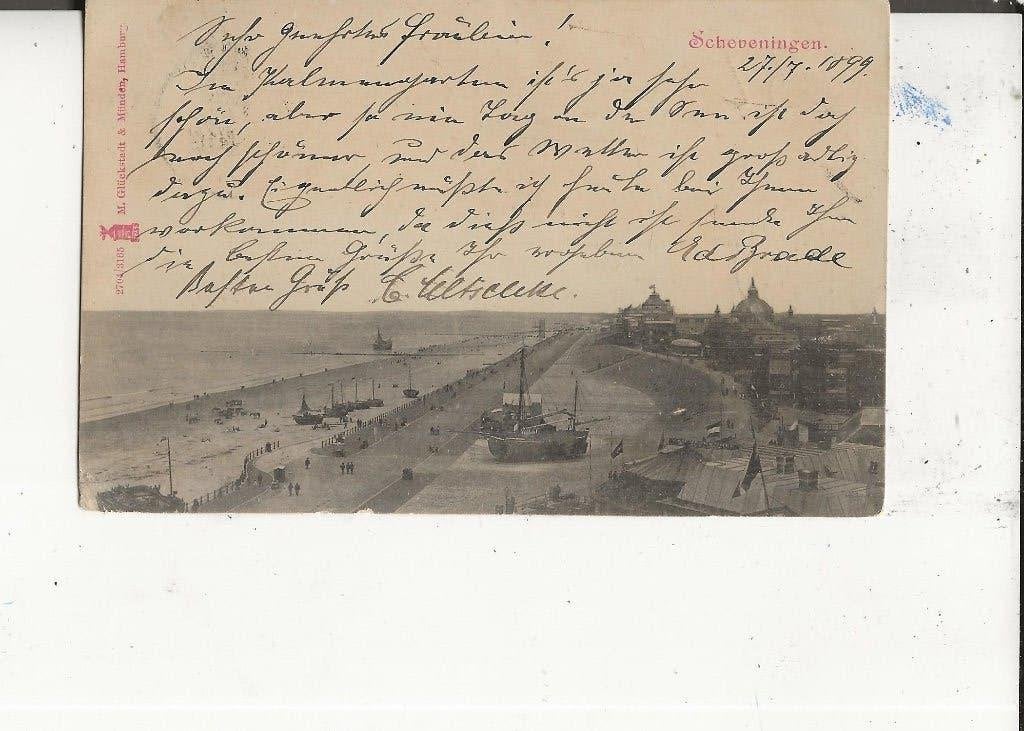 Scheveningen.
27./7. 1899.
Sehr geehrtes Fräulein!
Im Palmengarten ist's ja sehr
schön, aber so ein Tag an der See ist doch
noch schöner, und das Wetter ist großartig
dazu. Eigentlich müßte ich heute bei Ihnen
vorkommen, da dieß nicht ist sende Ihnen
die besten Grüße Ihr ergebener Ed Brade
Besten Gruß
M. Glückstadt & Münden, Hamburg.
2704/3165